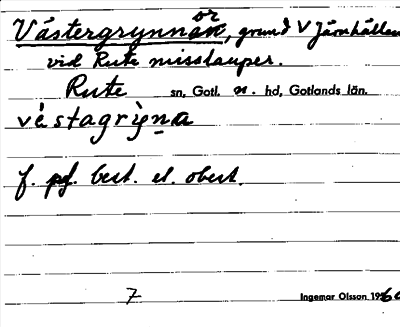 Västergrynnan, grund V Järnhällen
or
vid Rute misslauper.
Rute sn, Gotl. n. hd, Gotlands län.
vàstagrỳna
f. pl. best. el. obest.
7 Ingemar Olsson 1960